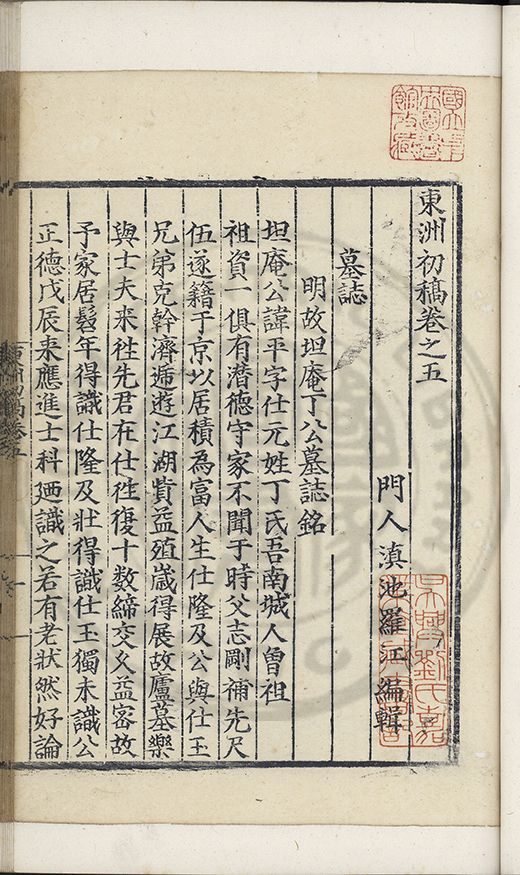 東洲初稿卷之五
門人滇池羅江編輯
墓誌
明故坦庵丁公墓誌銘
坦庵公諱平字仕元姓丁氏吾南城人曾祖
祖資一俱有潛德守家不聞于時父志剛補先尺
伍逐籍于京以居積為富人生仕隆及公與仕玉
兄弟克幹濟遞遊江湖貲益殖歲得展故廬墓樂
與士夫来徃先君在仕徃復十数締交久益宻故
予家居髫年得識仕隆及壯得識仕玉獨未識公
正德戊辰来應進士科廼識之若有老狀然好論